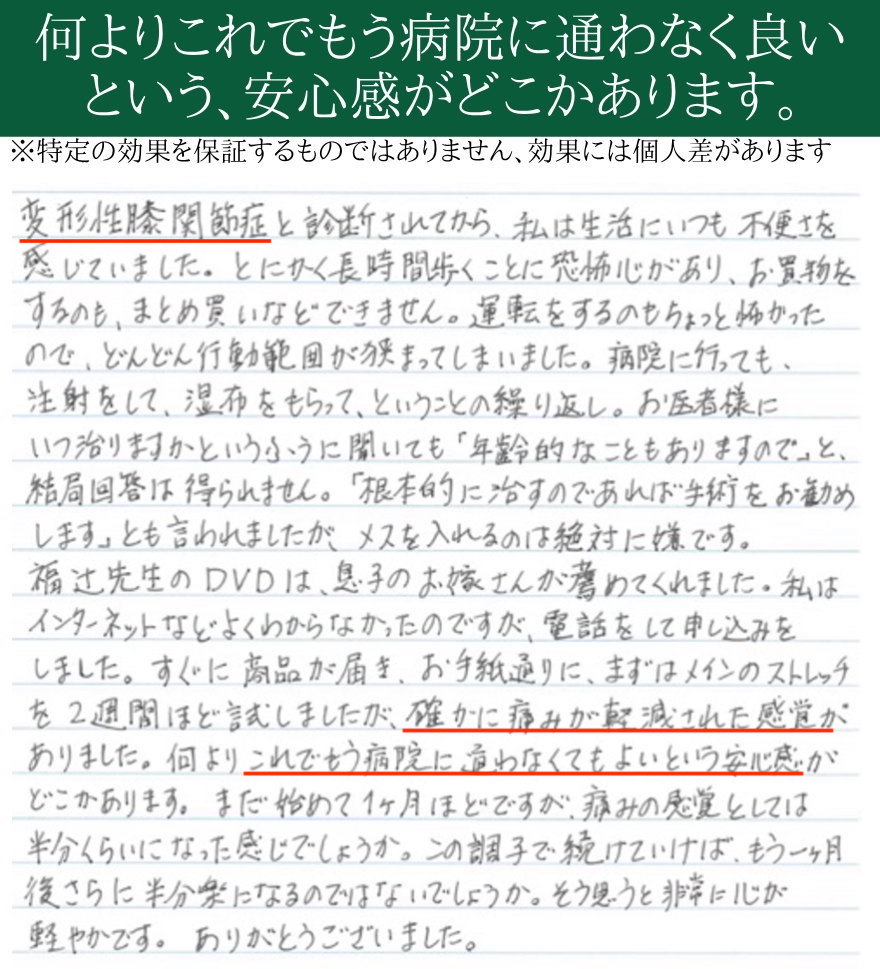 何よりこれでもう病院に通わなく良い
という、安心感がどこかあります。
※特定の効果を保証するものではありません、効果には個人差があります
変形性膝関節症と診断されてから、私は生活にいつも不便さを
感じていました。とにかく長時間歩くことに恐怖心があり、お買物を
するのも、まとめ買いなどできません。運転をするのもちょっと怖かった
ので、どんどん行動範囲が狭まってしまいました。病院に行っても、
注射をして、湿布をもらって、ということの繰り返し。お医者様に
いつ治りますかというふうに聞いても「年齢的なこともありますので」と、
結局回答は得られません。「根本的に治すのであれば手術をお勧め
します」とも言われましたが、メスを入れるのは絶対に嫌です。
福辻先生のDVDは、息子のお嫁さんが薦めてくれました。私は
インターネットなどよくわからなかったのですが、電話をして申し込みを
しました。すぐに商品が届き、お手紙通りに、まずはメインのストレッチ
を2週間ほど試しましたが、確かに痛みが軽減された感覚が
ありました。何よりこれでもう病院に通わなくてもよいという安心感が
どこかあります。まだ始めて1ヶ月ほどですが、痛みの感覚としては
半分くらいになった感じでしょうか。この調子で続けていけば、もう一ヶ月
後さらに半分楽になるのではないでしょうか。そう思うと非常に心が
軽やかです。ありがとうございました。